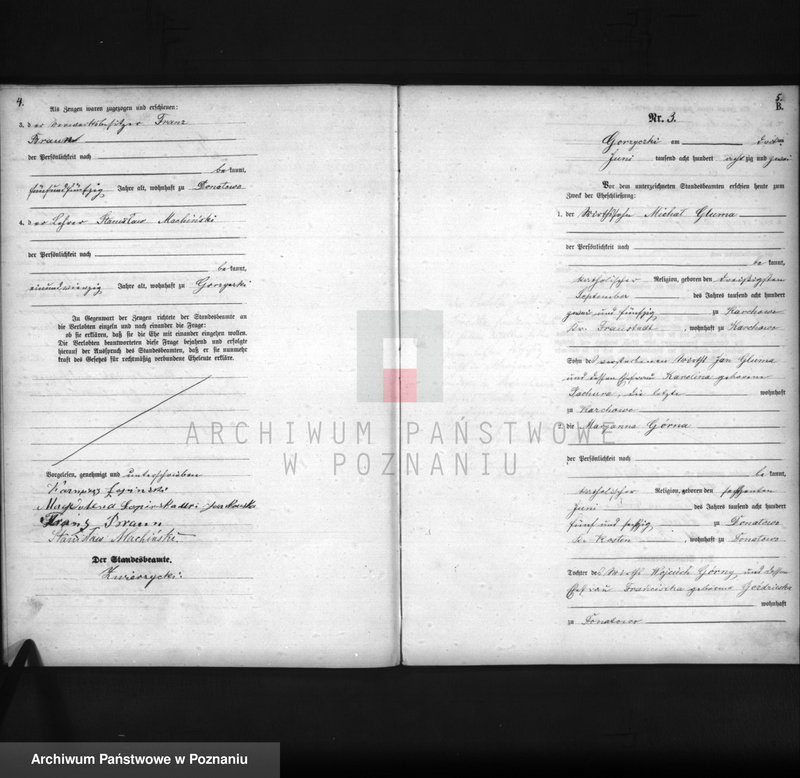 4.
Als Zeugen waren zugezogen und erschienen:
3. der Vorwerksbesitzer Franz
Braun
der Persönlichkeit nach
be kannt,
fünfundfünfzig Jahre alt, wohnhaft zu Donatowo
4. der Lehrer Stanislaw Machiński
der Persönlichkeit nach
be kannt,
einundvierzig Jahre alt, wohnhaft zu Gorzyczki
In Gegenwart der Zeugen richtete der Standesbeamte an
die Verlobten einzeln und nach einander die Frage:
ob sie erklären, daß sie die Ehe mit einander eingehen wollen.
Die Verlobten beantworteten diese Frage bejahend und erfolgte
hierauf der Ausspruch des Standesbeamten, daß er sie nunmehr
kraft des Gesetzes für rechtmäßig verbundene Eheleute erkläre.
Vorgelesen, genehmigt und unterschrieben
Magdalena
Franz Braun
Stanisław Machiński
Der Standesbeamte.
5.
B.
Nr. 3.
Gorzyczki am
Juni tausend acht hundert acht zig und zwei
Vor dem unterzeichneten Standesbeamten erschien heute zum
Zweck der Eheschließung:
1. der Wirthssohn Michał Gluma
der Persönlichkeit nach
be kannt,
katholischer Religion, geboren den dreißigsten
September des Jahres tausend acht hundert
zwei und fünfzig zu Karchowo
Kr. Fraustadt, wohnhaft zu Karchowo
Sohn des verstorbenen Wirth Jan Gluma
und dessen Ehefrau Karolina geborene
Pachura, die letzte wohnhaft
zu Karchowo
2. die Maryanna Górna
der Persönlichkeit nach
be kannt,
katholischer Religion, geboren den
Juni des Jahres tausend acht hundert
fünf und sechzig zu Donatowo
Kr. Kosten, wohnhaft zu Donatowo
Tochter des Wirth Wojciech Górny und dessen
Ehefrau Franciszka geborene
wohnhaft
zu Donatowo
ARCHIWUM PAŃSTWOWE
W POZNANIU
Archiwum Państwowe w Poznaniu